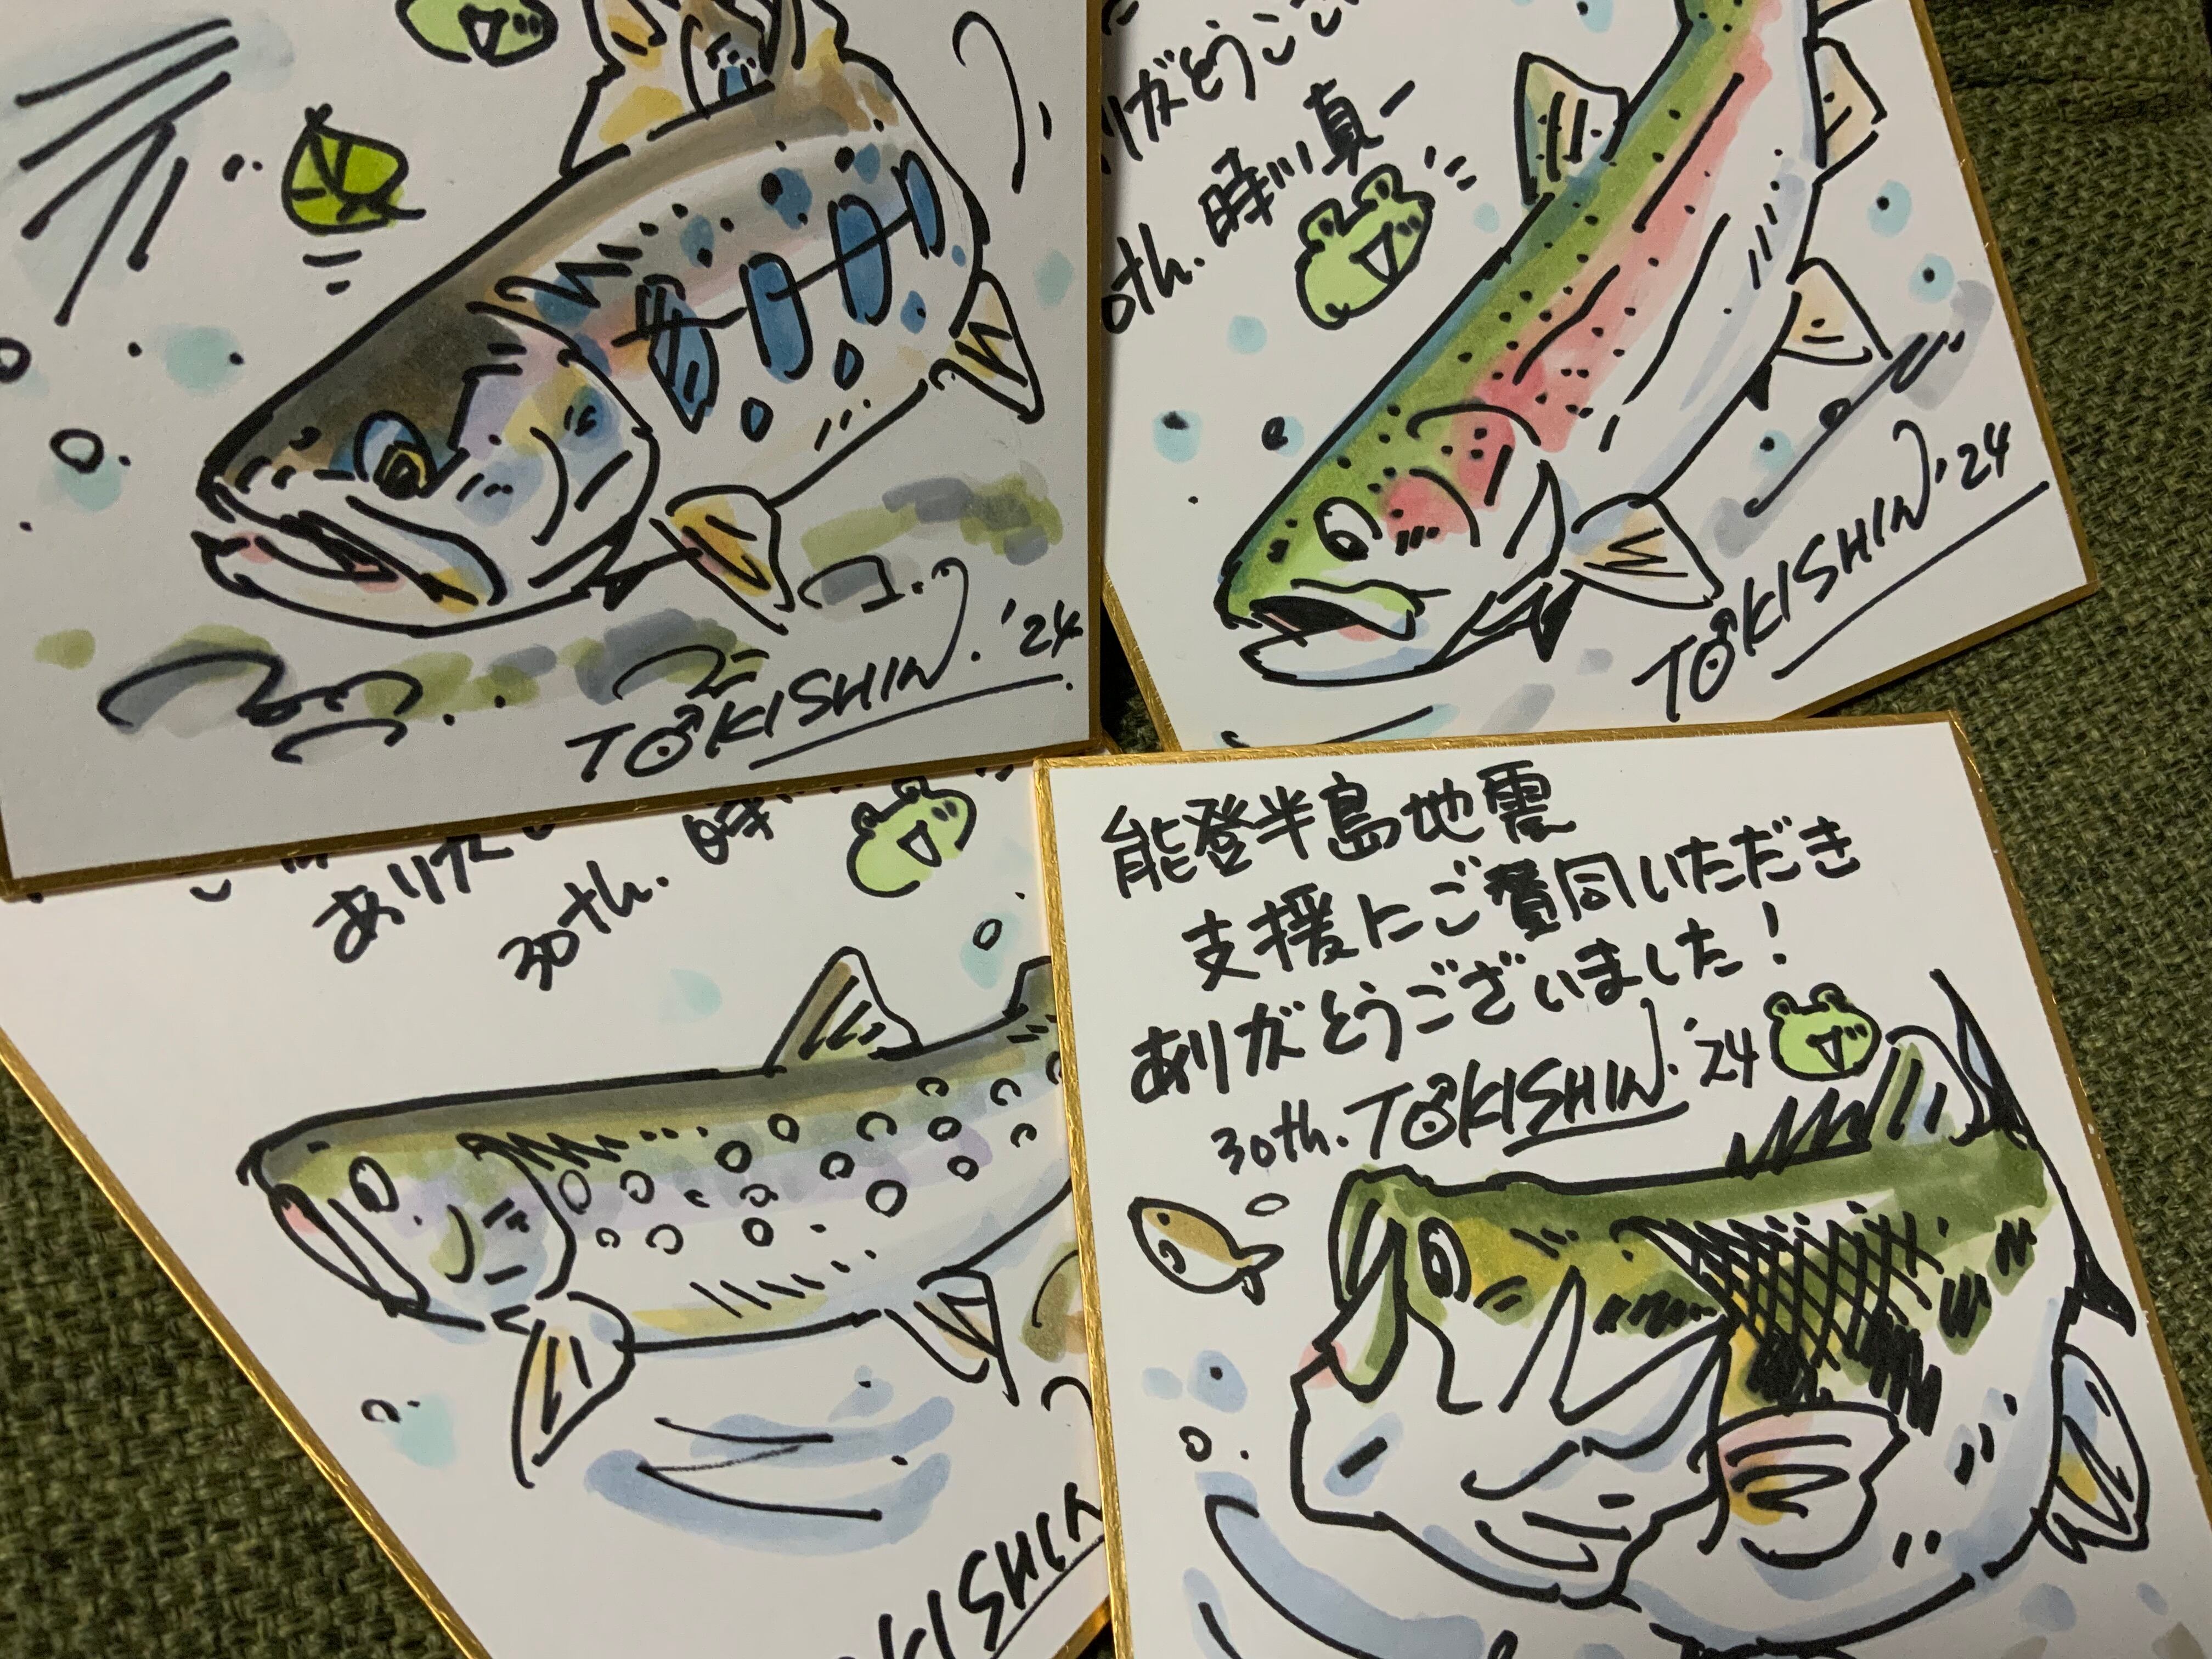 TOKISHIN. '24
ありがとうござ
0th. 時川真一
TOKISHIN '24
ありが
30th. 時
KISHIN
能登半島地震
支援にご賛同いただき
ありがとうございました!
30th. TOKISHIN. '24